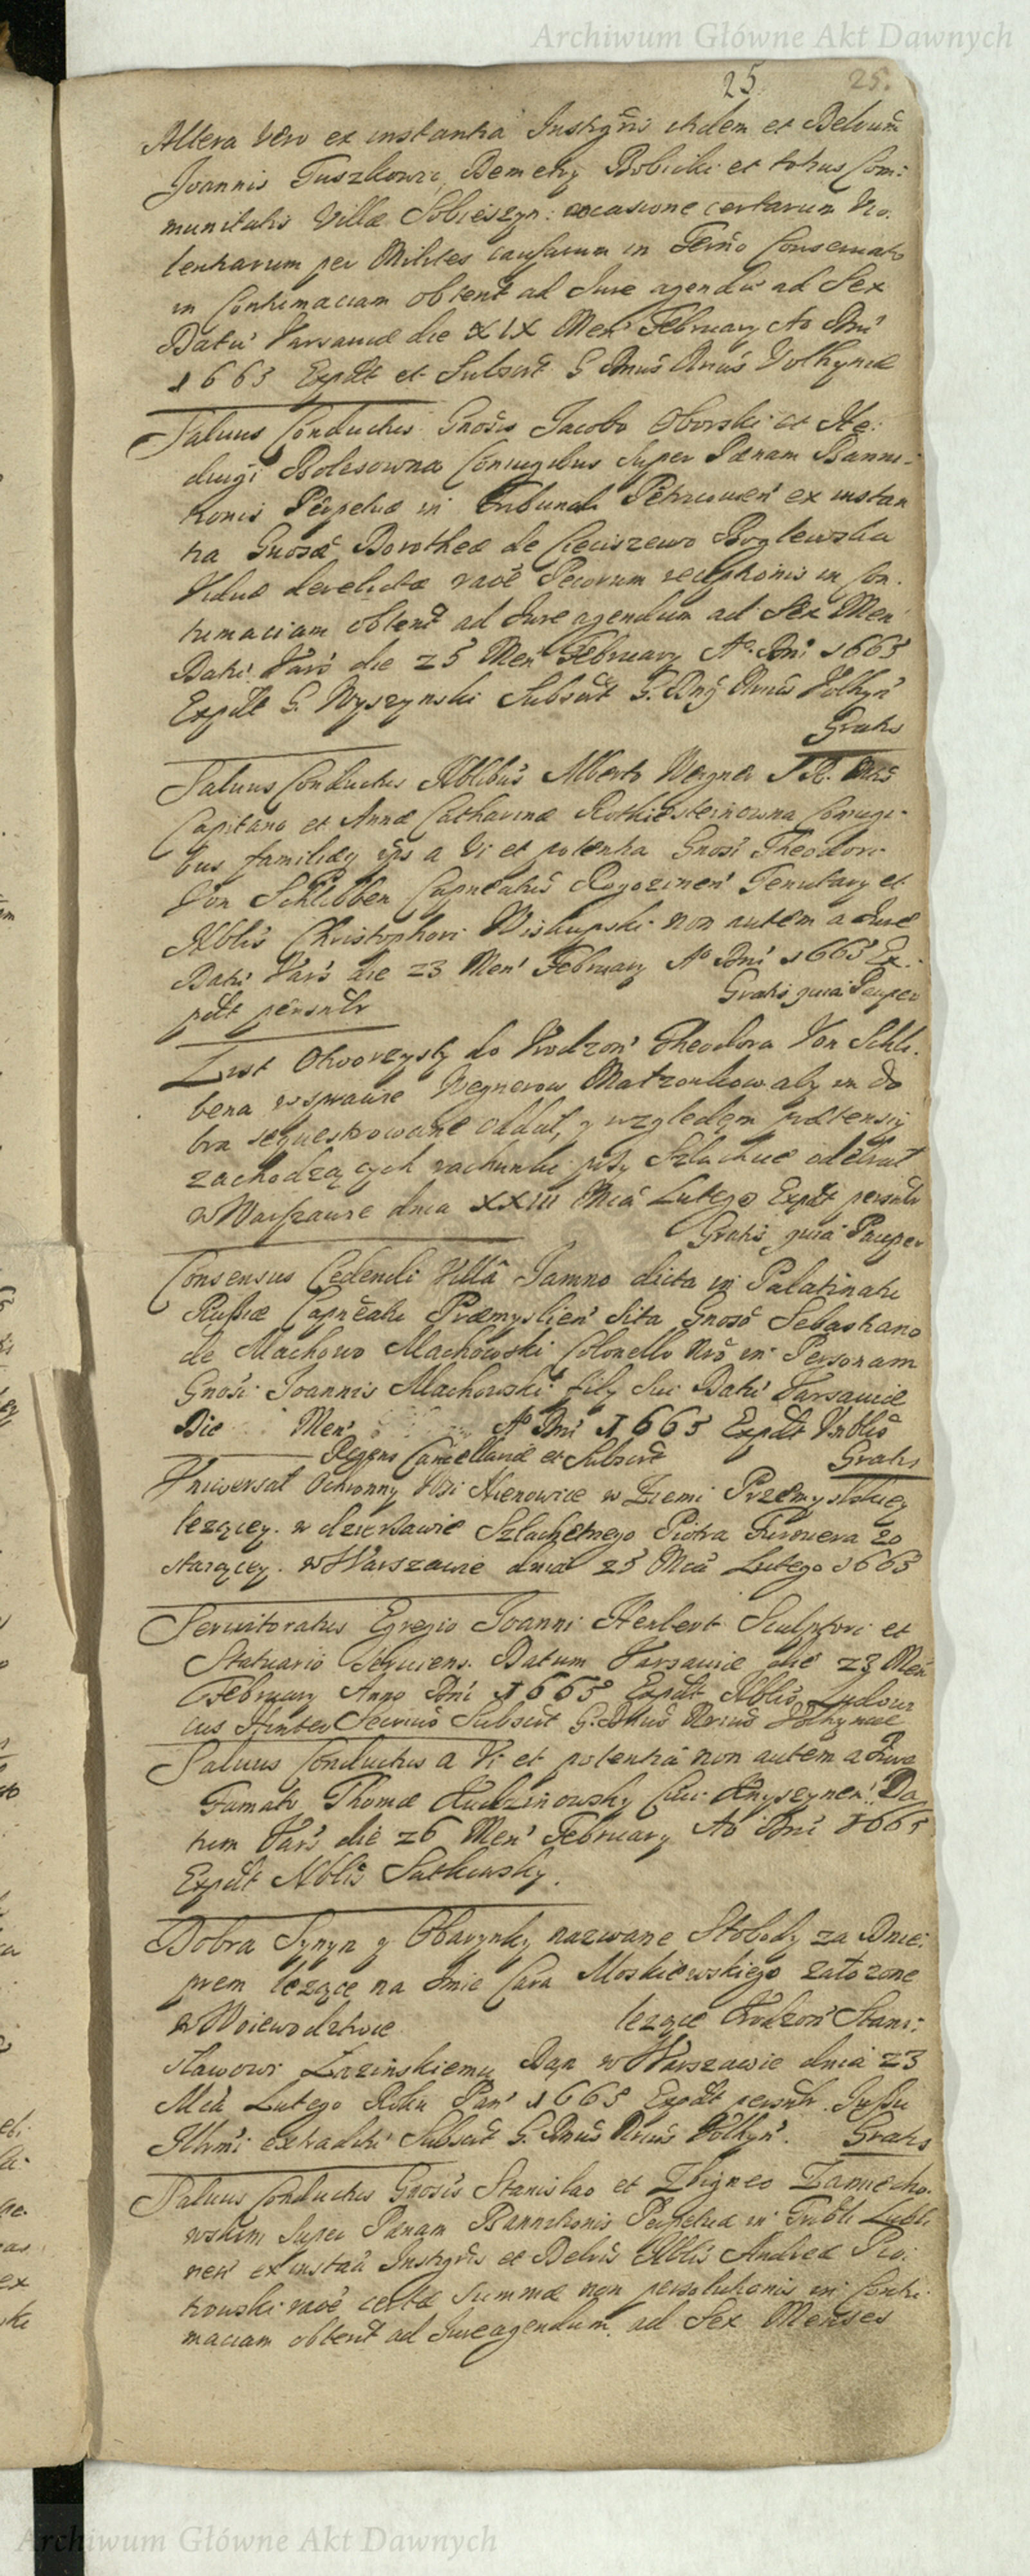 Archiwum Główne Akt Dawnych
25 25.
Altera vero ex instantia Instigris itidem et Delcum
Joannis Tuszkowic, Demetry Bobicki et totius Com:
munitatis Villæ Sobieszyn: occasione certarum Vio.
lentiarum per Milites causarum in Termo Conservato
in Contumaciam obtent ad Jure agendu ad Sex
Datu Varsaviæ die XIX Men Februarÿ Ao Dni
1663 Expdt et Subscrt G Dnus Drius Volhyniæ
Salvus Conductus Gnosis Jacobo Oborski et He:
dvigi Bolesowna Coniugibus Super Pænam Banni-
tionis Perpetuæ in Tribunali Petricovien ex instan
tia Gnosæ Dorotheæ de Cieciszewo Boglewska
Viduæ derelictæ raõe Pecorum receptionis in Con.
tumaciam obtent ad Jure agendum ad Sex Men
Dati Vars die 25 Men Februarÿ Ao. Dni 1663
Expdt G. Wyszynski Subscrt G. Dnÿ Drius Volhyn
Gratis
Salvus Conductus Nblibus Alberto Wegner S R. Mtis
Capitano et Annæ Catharinæ Rothkiesteinowna Coniugi-
bus familiæq ips a Vi et potentia Gnosi Theodori
Von Schlibben Capneatus Rogozinen Tenutarÿ et
Nblis Christophori Biskupski non autem a Jure
Dati Vars die 23 Men Februarÿ Ao Dni 1663 Ex-
pdt persntr Gratis quia Pauper
List Otworzysty do Vrodzon Theodora Von Schli.
bena w sprawie Wegnerow Matzonkow aby im do
bra sequestrowane oddal, y względem prætensiy
zachodzących rachunki przy Szlachcie odebrał
w Warszawie dnia XXIII Mca Lutego Expdt persntr
Gratis quia Pauper
Consensus Cedendi Villâ Jamno dicta in Palatinatu
Russiæ Capneatu Præmyslien Sita Gnoso Sebastiano
de Machowo Machowski Colonello Nro in Personam
Gnosi Joannis Machowski filÿ Sui Dati Varsaviæ
Die Men Ao Dni 1663 Expdt Vnblis
Regens Cancellariæ et Subscrt Gratis
Vniwersal Ochronny Wsi Nienowice w Ziemi Przemyskiey
lezącey. w dzierzawie Szlachetnego Piotra Zo
staiącey. w Warszawie dnia 23 Mca Lutego 1663
Servitoratus Egregio Joanni Herbert Sculptori et
Statuario Serviens. Datum Varsaviæ die 23 Men
Februarÿ Anno Dni 1663 Expdt Nblis Ludovi
cus Hinter Secrius Subscrt G. Dnus Drius Volhyniæ
Salvus Conductus a Vi et potentia non autem a Jure
Famato Thomæ Kudzinowsky Civi Knyszynen. Da
tum Vars die 26 Men Februarÿ Ao Dni 1663
Expdt Nblis Sutkowsky.
Dobra Synyn y Obarynky nazwane Słobody za Dnie:
prem lezące na Imie Cara Moskiewskiego załozone
w Woiewodztwie lezące Vrodzon Stani:
sławowi Lazinskiemu Dan w Warszawie dnia 23
Mca Lutego Roku Pan 1663 Expdt persntr. Jussu
Illrmi extraditi Subscrt G. Dnus Drius Volhyn. Gratis
Salvus Conductus Gnosis Stanislao et Zbigneo Zamiecho.
wskim Super Pænam Bannitionis Perpetuæ in Tribli Lubli
nen ex instaa Instigris et Delris Nblis Andreæ Pio:
trowski raõe certæ summæ non persolutionis in Contu.
maciam obtent ad Jure agendum ad Sex Menses
Archiwum Główne Akt Dawnych